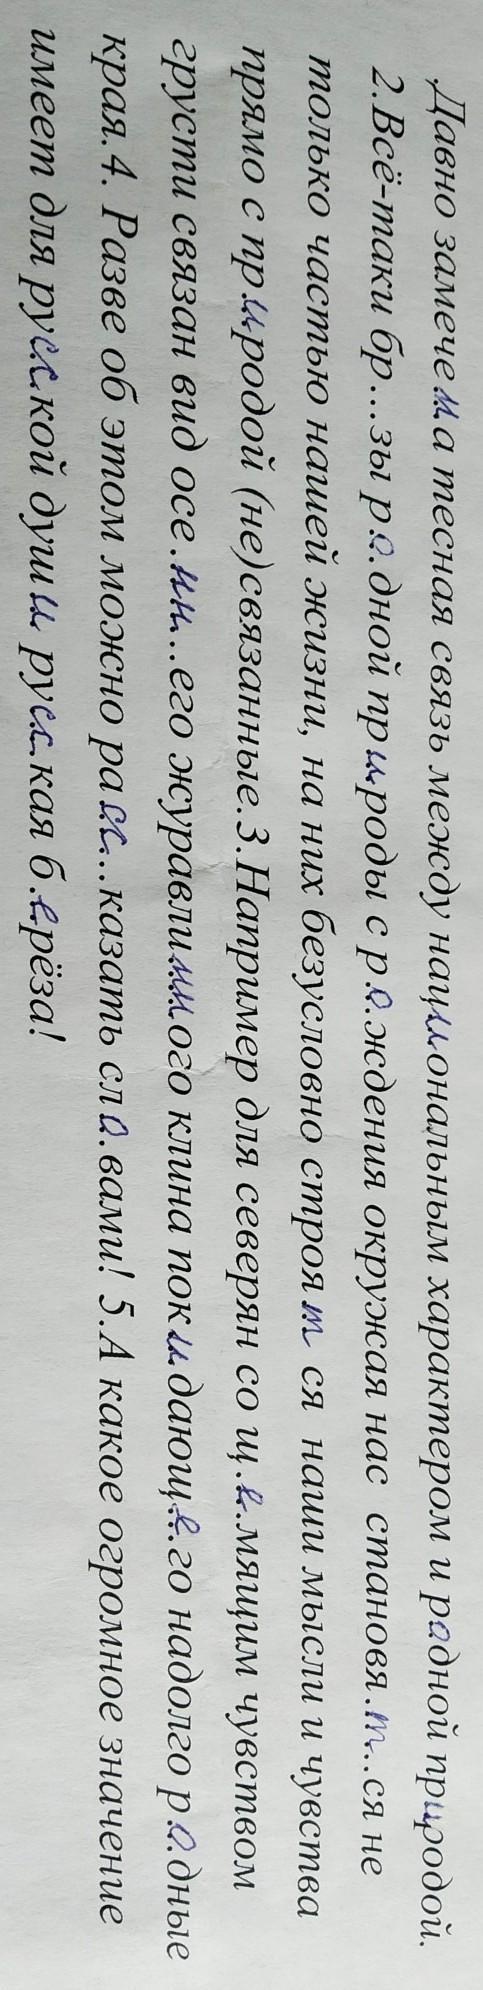 Давно замечена тесная связь между национальным характером и родной природой.
2.Всё-таки бр...зы р.о.дной природы с р.о.ждения окружая нас становя.т..ся не
только частью нашей жизни, на них безусловно строят ся наши мысли и чувства
прямо с пр.и.родой (не)связанные.3.Например для северян со щ.е.мящим чувством
грусти связан вид осе.нн...его журавлиного клина пок.и.дающ.е..го надолго р.о.дные
края.4. Разве об этом можно расс..казать сл.о.вами! 5.А какое огромное значение
имеет для русской души русс.кая б.е.рёза!